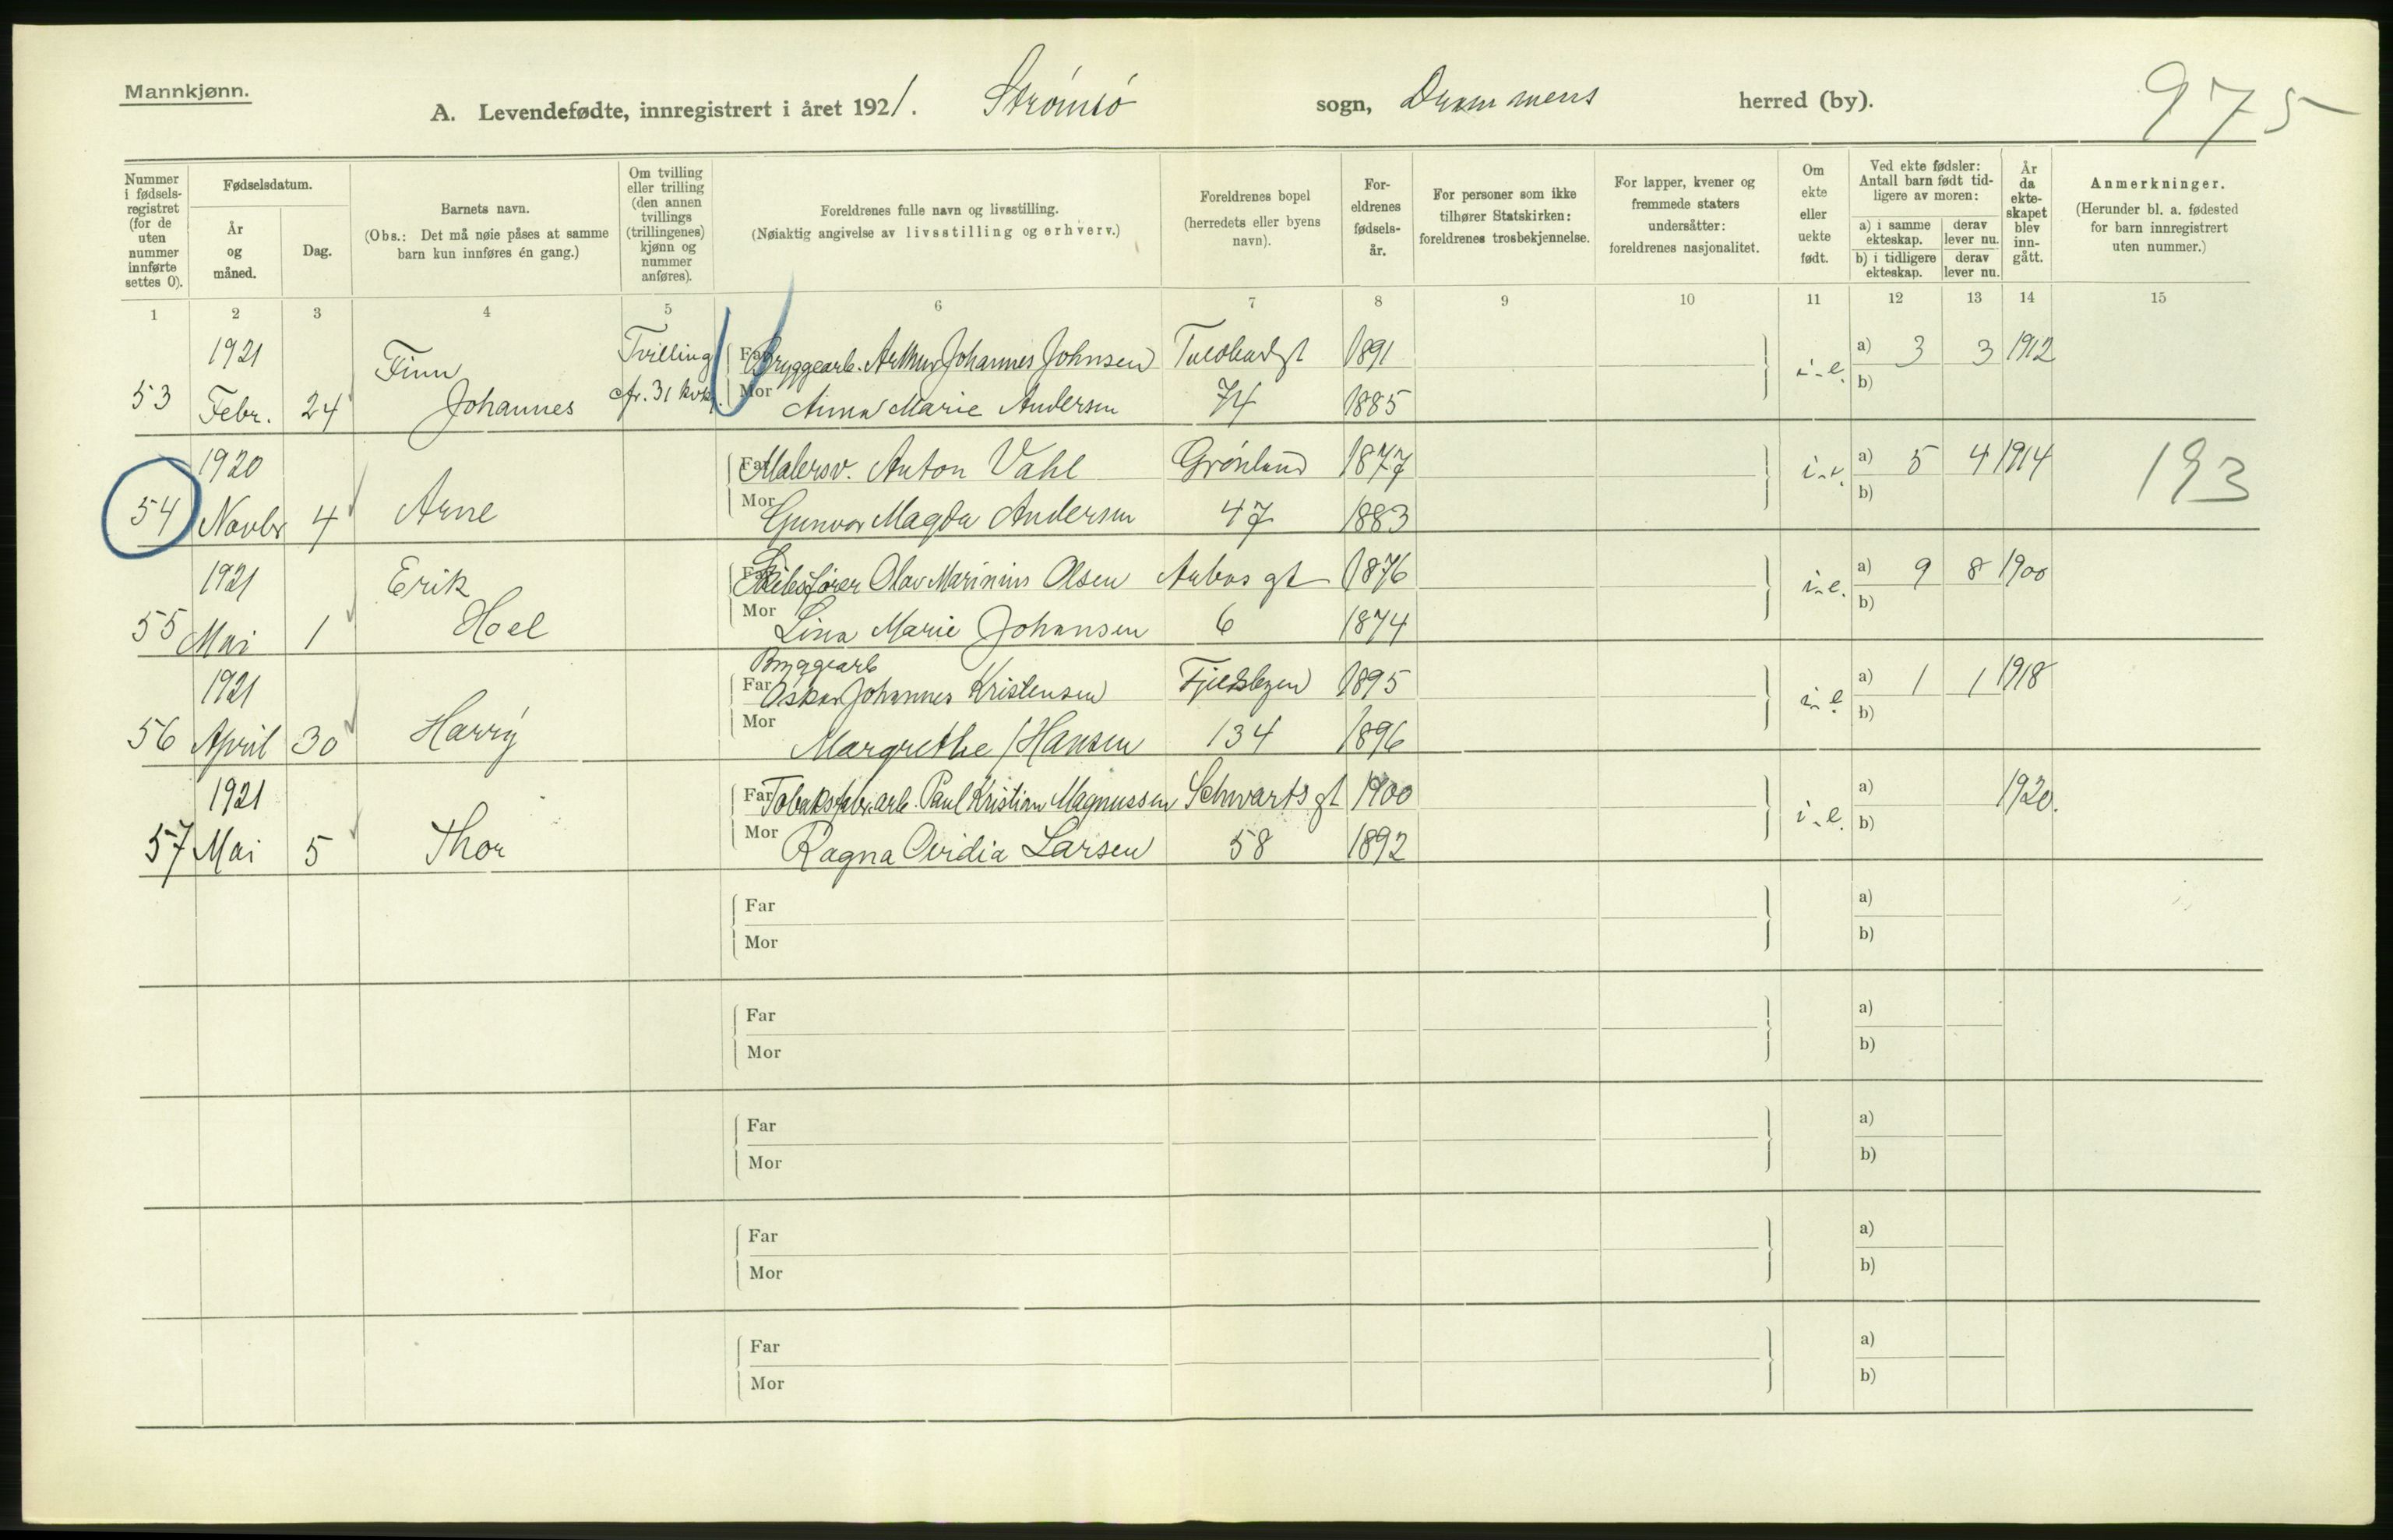 Mannkjønn.
A. Levendefødte, innregistrert i året 1921. Strømsø sogn, Drammens herred (by).
975
Nummer i fødsels-registret (for de uten nummer innførte settes O).
Fødselsdatum.
År og måned.
Dag.
Barnets navn.
(Obs.: Det må nøie påses at samme barn kun innføres én gang.)
Om tvilling eller trilling (den annen tvillings (trillingenes) kjønn og nummer anføres).
Foreldrenes fulle navn og livsstilling.
(Nøiaktig angivelse av livsstilling og erhverv.)
Foreldrenes bopel
(herredets eller byens navn).
For-eldrenes fødsels-år.
For personer som ikke tilhører Statskirken: foreldrenes trosbekjennelse.
For lapper, kvener og fremmede staters undersåtter: foreldrenes nasjonalitet.
Om ekte eller uekte født.
Ved ekte fødsler: Antall barn født tid-ligere av moren:
a) i samme ekteskap.
derav lever nu.
b) i tidligere ekteskap.
derav lever nu.
År da ekte-skapet blev inn-gått.
Anmerkninger.
(Herunder bl. a. fødested for barn innregistrert uten nummer.)
1 2 3 4 5 6 7 8 9 10 11 12 13 14 15
1921 Finn Tvilling Far Bryggearb. Arthur Johannes Johnsen 1891 i.e. a) 3 3 1912
53 Febr. 24 Johannes cfr. 31 kvk. Mor Anna Marie Andersen 74 1885 b)
1920 Far Malersv. Anton Vahl Grønland 1877 i.e. a) 5 4 1914 193
54 Novbr 4 Arne Mor Gunvor Magda Andersen 47 1883 b)
1921 Erik Far Skibsfører Olav Marinius Olsen gt 1876 i.e. a) 9 8 1900
55 Mai 1 Hoel Mor Lina Marie Johansen 6 1874 b)
Bryggearb
1921 Far Oskar Johannes Kristensen 1895 i.e. a) 1 1 1918
56 April 30 Harry Mor Margrethe Hansen 134 1896 b)
1921 Far Tobaksfabr.arb. Paul Kristian Magnussen Schwarts gt 1900 i.e. a) 1920.
57 Mai 5 Thor Mor Ragna Ovidia Larsen 58 1892 b)
Far a)
Mor b)
Far a)
Mor b)
Far a)
Mor b)
Far a)
Mor b)
Far a)
Mor b)